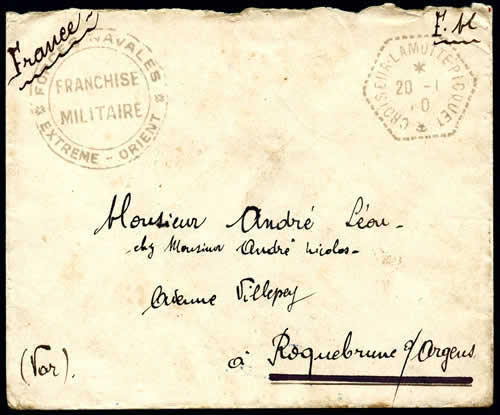 France
F. M
FORCES NAVALES
FRANCHISE
MILITAIRE
EXTREME - ORIENT
CROISEUR LAMOTTE PICQUET
20 - 1
0
Monsieur André Léon
chez Monsieur André Nicolas
Avenue Villepey
(Var).
à Roquebrune s/Argens